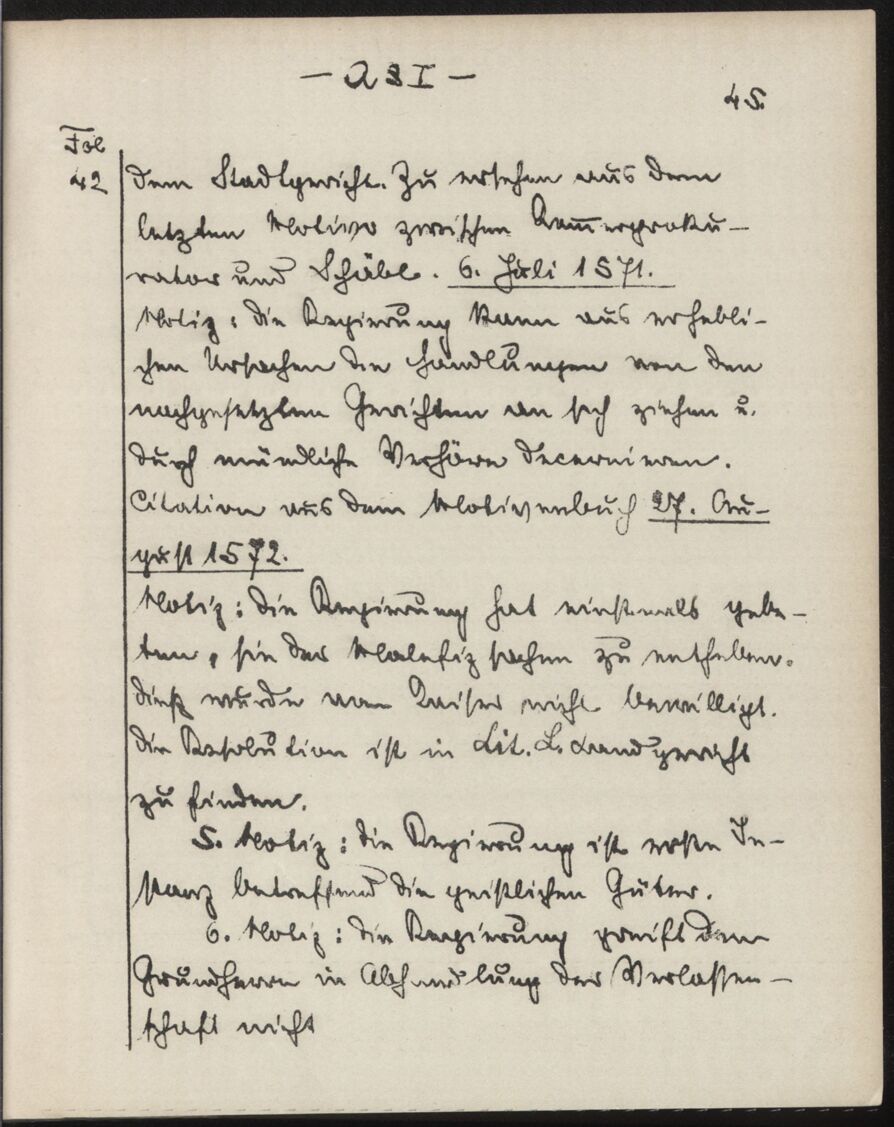 — A 3 I —
45.
Fol
42
dem Stadtgericht. Zu ersehen aus dem
letzten Motivo zwischen Kam̅erproku-
rator und Schäbl. 6. Juli 1571.
Notiz: die Regierung kann aus erhebli-
chen Ursachen die Handlungen von den
nachgesetzten Gerichten an sich ziehen u.
durch mündliche Verhöre decernieren.
Citation aus dem Motivenbuch 27. Au-
gust 1572.
Notiz: die Regierung hat einstmals gebe-
ten, sie der Malefizsachen zu entheben.
dieß wurde vom Kaiser nicht bewilligt.
die Resolution ist in Lit. L. Landgericht
zu finden.
5. Notiz: die Regierung ist erste In-
stanz betreffend die geistlichen Güter.
6. Notiz: die Regierung greift dem
Grundherrn in Abhandlung der Verlassen-
schaft nicht